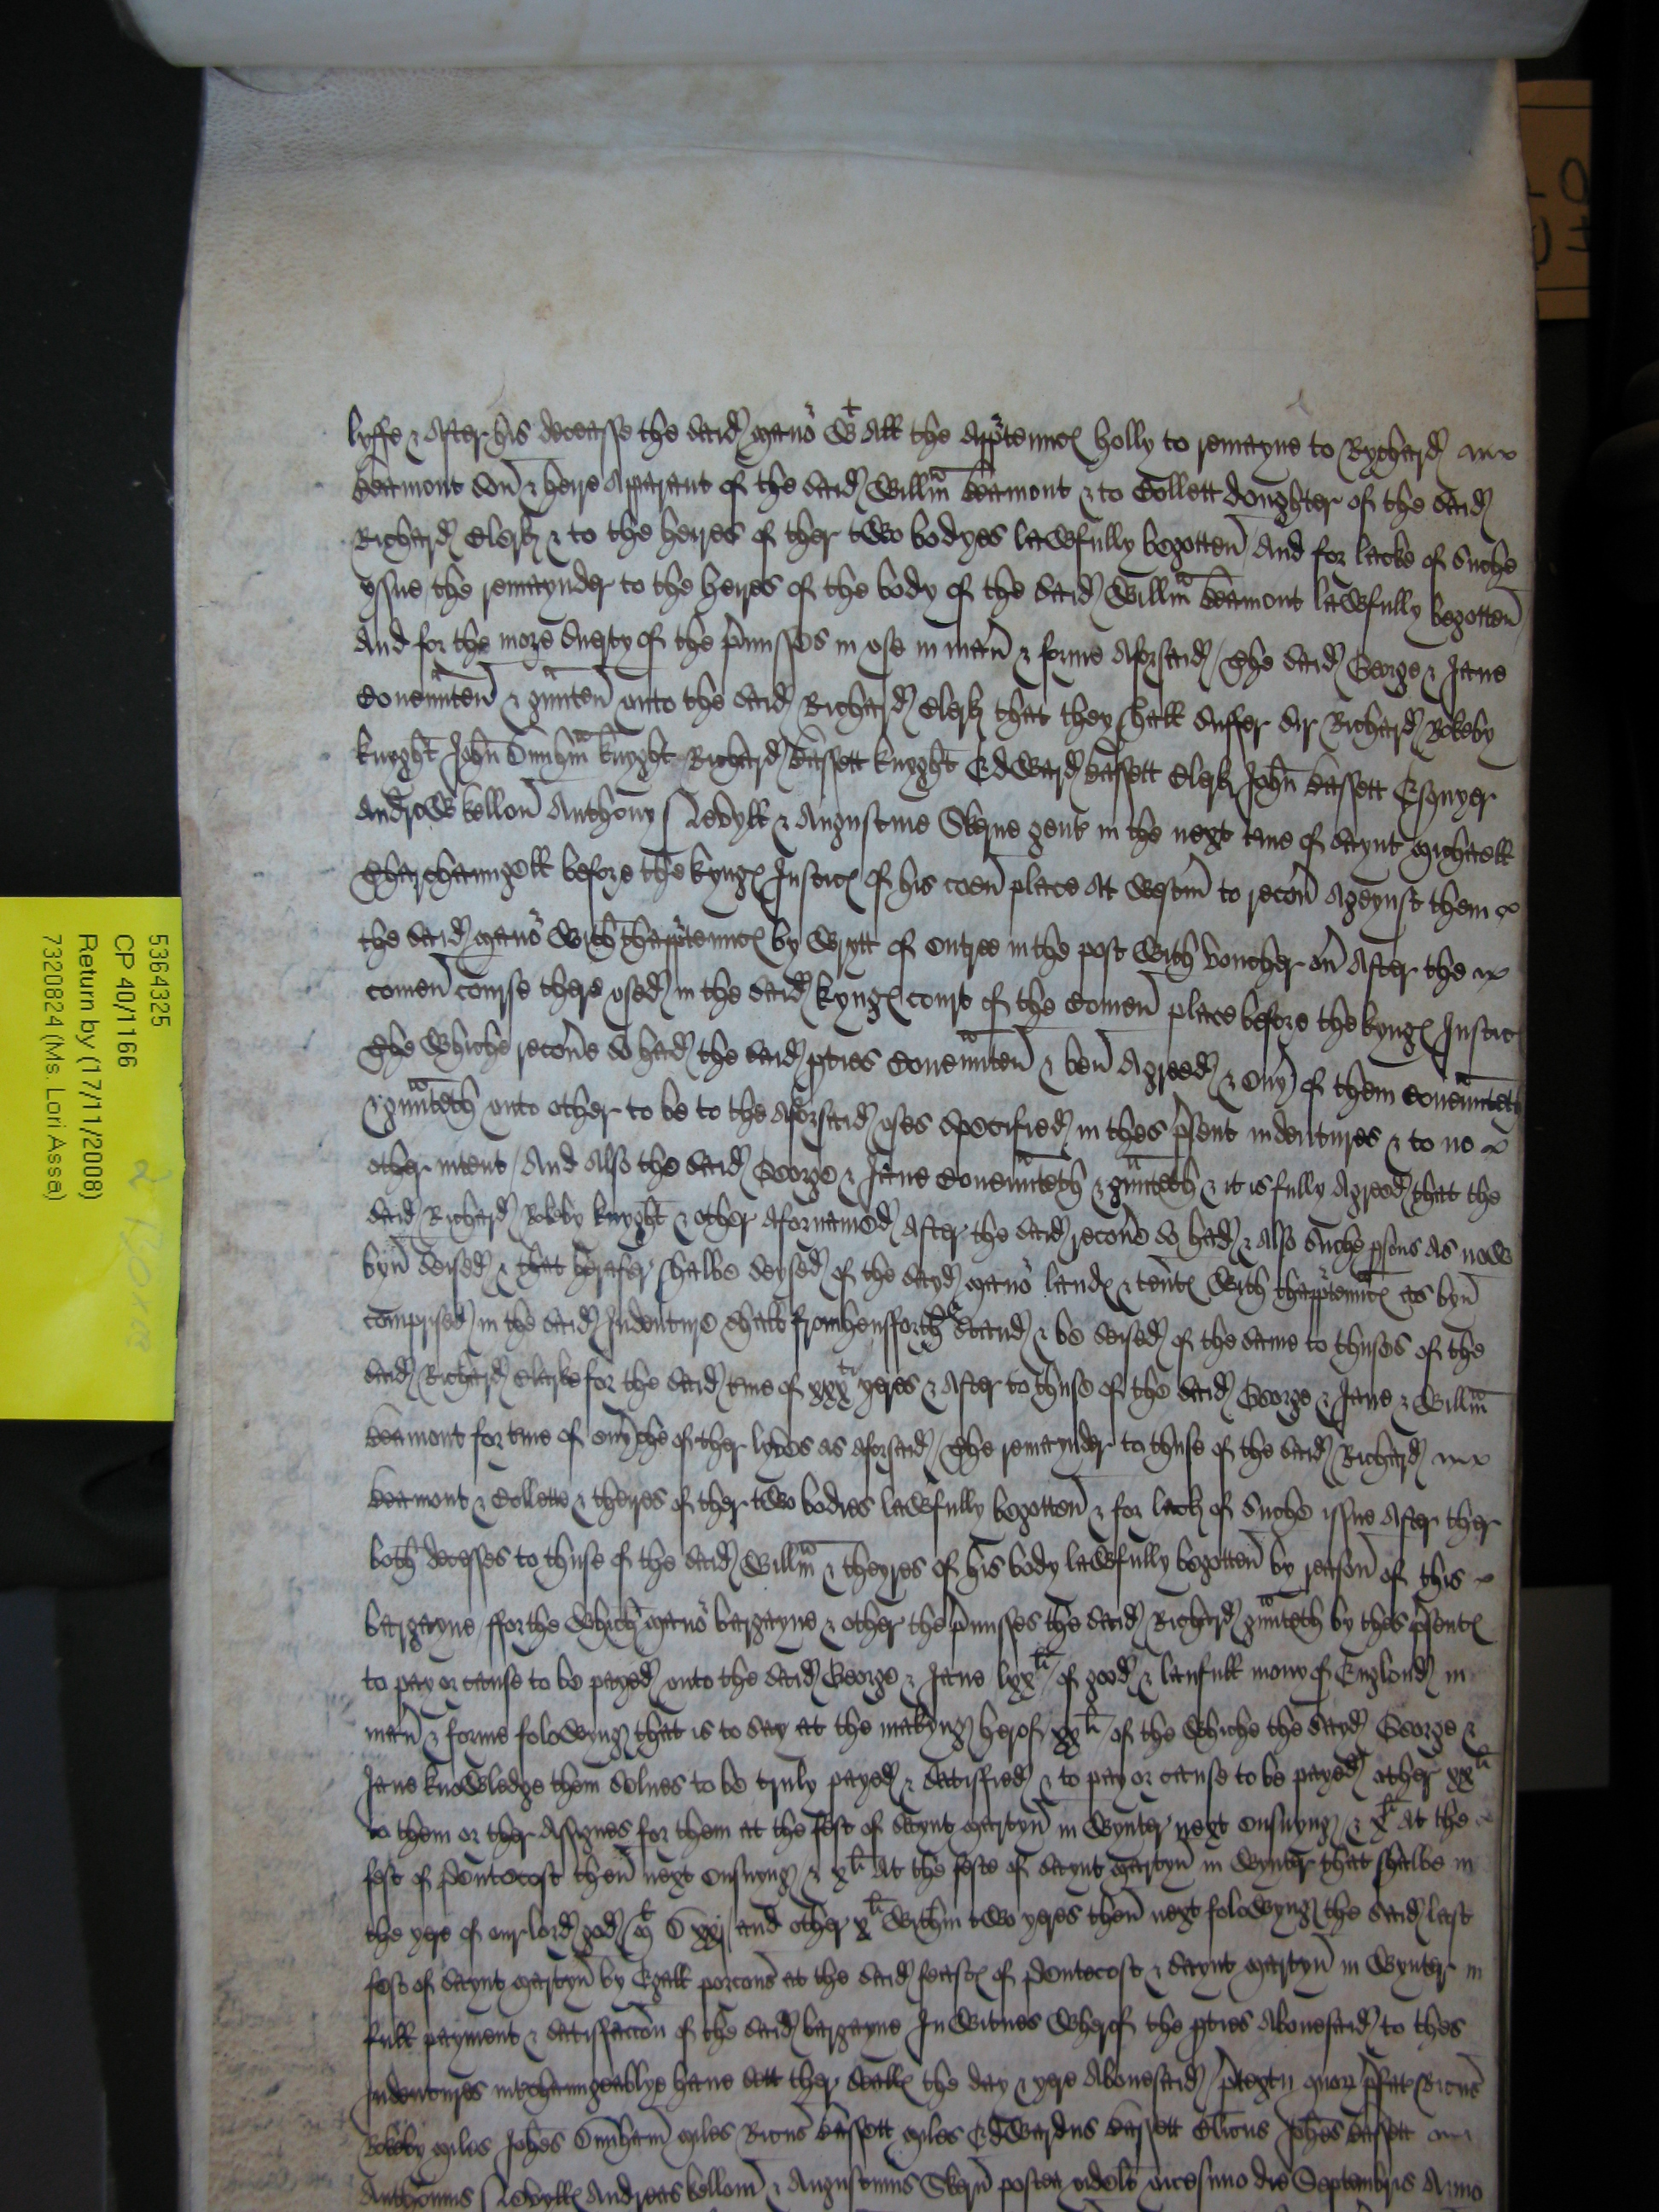 lyffe & after his deceasse the said mano(r) wt all the apptennc(es) holly to remayne to Rychard
Beamont son & heire apparant of the said Willm Beamont & to Collett doughter of the said
Richard Clerk & to the heires of ther two bodyes lawfully begotten And for lacke of suche
yssue the remaynder to the heires of the body of the said Willm Beamont lawfully begotten
And for the more suerty of the pmisses in use in man & forme aforsaid / The said George & Jane
covennten & gnnten unto the said Richard Clerk that they shall suffer Sir Richard Rokeby
knyght John Dunham knyght Richard Bassett knyght Edward Bassett Clerk John Bassett Esquyer
Androw kellom Anthony Nevyll & Augustine Skerne gent in the next tme of saynt Michaell
Tharchaungell before the kyng(es) Justic(es) of his coen place at Westm to recov ageynst them
the said mano(r) with thapptennc(es) by Wrytt of entree in the post with voucher ov after the
comen course there used in the said kyng(es) court of the Comen place before the kyng(es) Justic
The whiche recove so had the said pties covennten & ben agreed & evy of them covennteth
& gnnteth unto other to be to the aforsaid uses specified in thes psent indentures & to no
other intent / And also the said George & Jane covennteth & gnnteth & it is fully agreed that the
said Richard Rokeby knyght & other afornamed after the said recove so had & also suche psons as now
byn seised & that herafter shalbe seysed of the sayd mano(r) land(es) & tent(es) with thapptennc(es) as byn
comprised in the said Indenture shall fromhensforth stand & be seised of the same to thuses of the
said Richard Clarke for the said tme of xxxti yeres & after to thuse of the said George & Jane & Willm
Beamont for tme of evyche of ther lyves as aforsaid / The remaynder to thuse of the said Richard
Beamont & Collette & theires of ther two bodies lawfully begotten & for lack of suche issue after ther
both decesses to thuse of the said Willm & theyres of his body lawfully begotten by reason of this
bargayne ffor the which mano(r) bargayne & other the pmisses the said Richard gnnteth by thes psent(es)
to pay or cause to be payed unto the said George & Jane lxxli of good & laufull mony of Englond in
man & forme folowyng that is to say at the makyng herof xxli of the whiche the sayd George &
Jane knowledge them selves to be truly payed & satisfied & to pay or cause to be payed other xxli
to them or ther assignes for them at the fest of saynt Martyn in Wynter next ensuyng & xli at the
fest of Pentecost then next ensuyng & xli at the feste of saynt Martyn in Wynter that shalbe in
the yere of our lord god mt d xxj and other xli within two yeres then next folowyng the said last
fest of saynt Martyn by Egall porcons at the said feast(es) of Pentecost & saynt Martyn in Wynter in
full payment & satisfaccon of the said bargayne In Witnes wherof the pties abovesaid to thes
Indentures intchaungeablye have sett ther seall(es) the day & yere abovesaid / ptextu quor pfat Ricus
Rokeby miles Johes Dunham miles Ricus Bassett miles Edwardus Bassett Clicus Johes Bassett
Anthonius Nevyll Andreas kellom & Augustinus Skern postea videlt vicesimo die Septembris Anno
5364325
CP 40/1166
Return by (17/11/2008)
7320824 (Ms. Lori Asse)